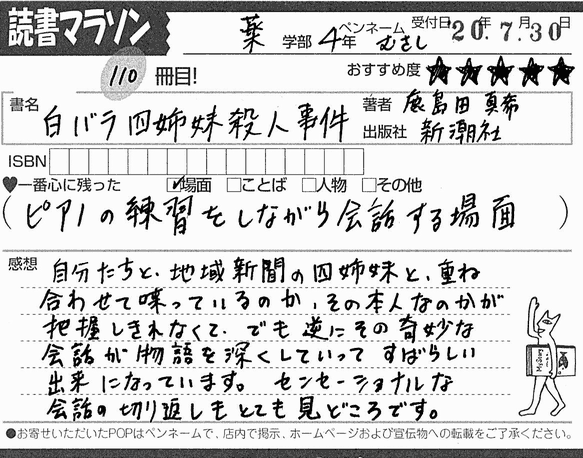 読書マラソン
薬 学部 4年 ペンネーム むさし 受付日 20年 7月 30日
110 冊目! おすすめ度 ★★★★★
書名 白バラ四姉妹殺人事件 著者 鹿島田真希
出版社 新潮社
ISBN
♥一番心に残った ☑場面 □ことば □人物 □その他
(ピアノの練習をしながら会話する場面)
感想 自分たちと、地域新聞の四姉妹と、重ね
合わせて喋っているのか、その本人なのかが
把握しきれなくて、でも逆にその奇妙な
会話が物語を深くしていって すばらしい
出来になっています。 センセーショナルな
会話の切り返しもとても見どころです。
●お寄せいただいたPOPはペンネームで、店内で掲示、ホームページおよび宣伝物への転載をご了承ください。